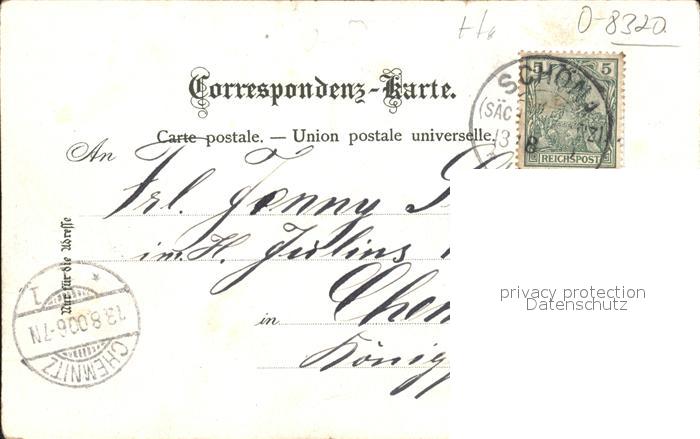 O-8320
Correspondenz-Karte.
Carte postale. — Union postale universelle.
5 5
REICHSPOST
SCHÖNA
(SÄC
13 8
An
Frl. Jenny
im H. Julius
Chem
in
König
Nur für die Adresse
CHEMNITZ
13.8.00.6-7N
1
privacy protection
Datenschutz